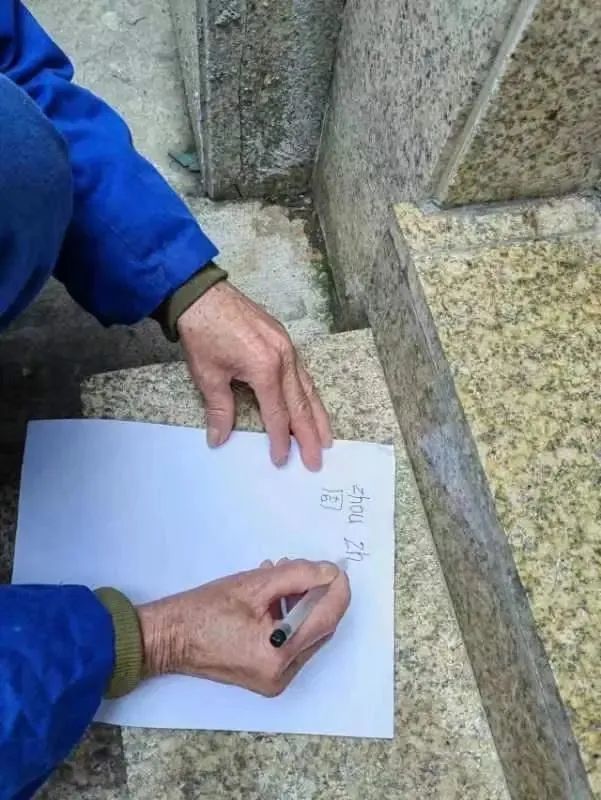 zhou zh
周